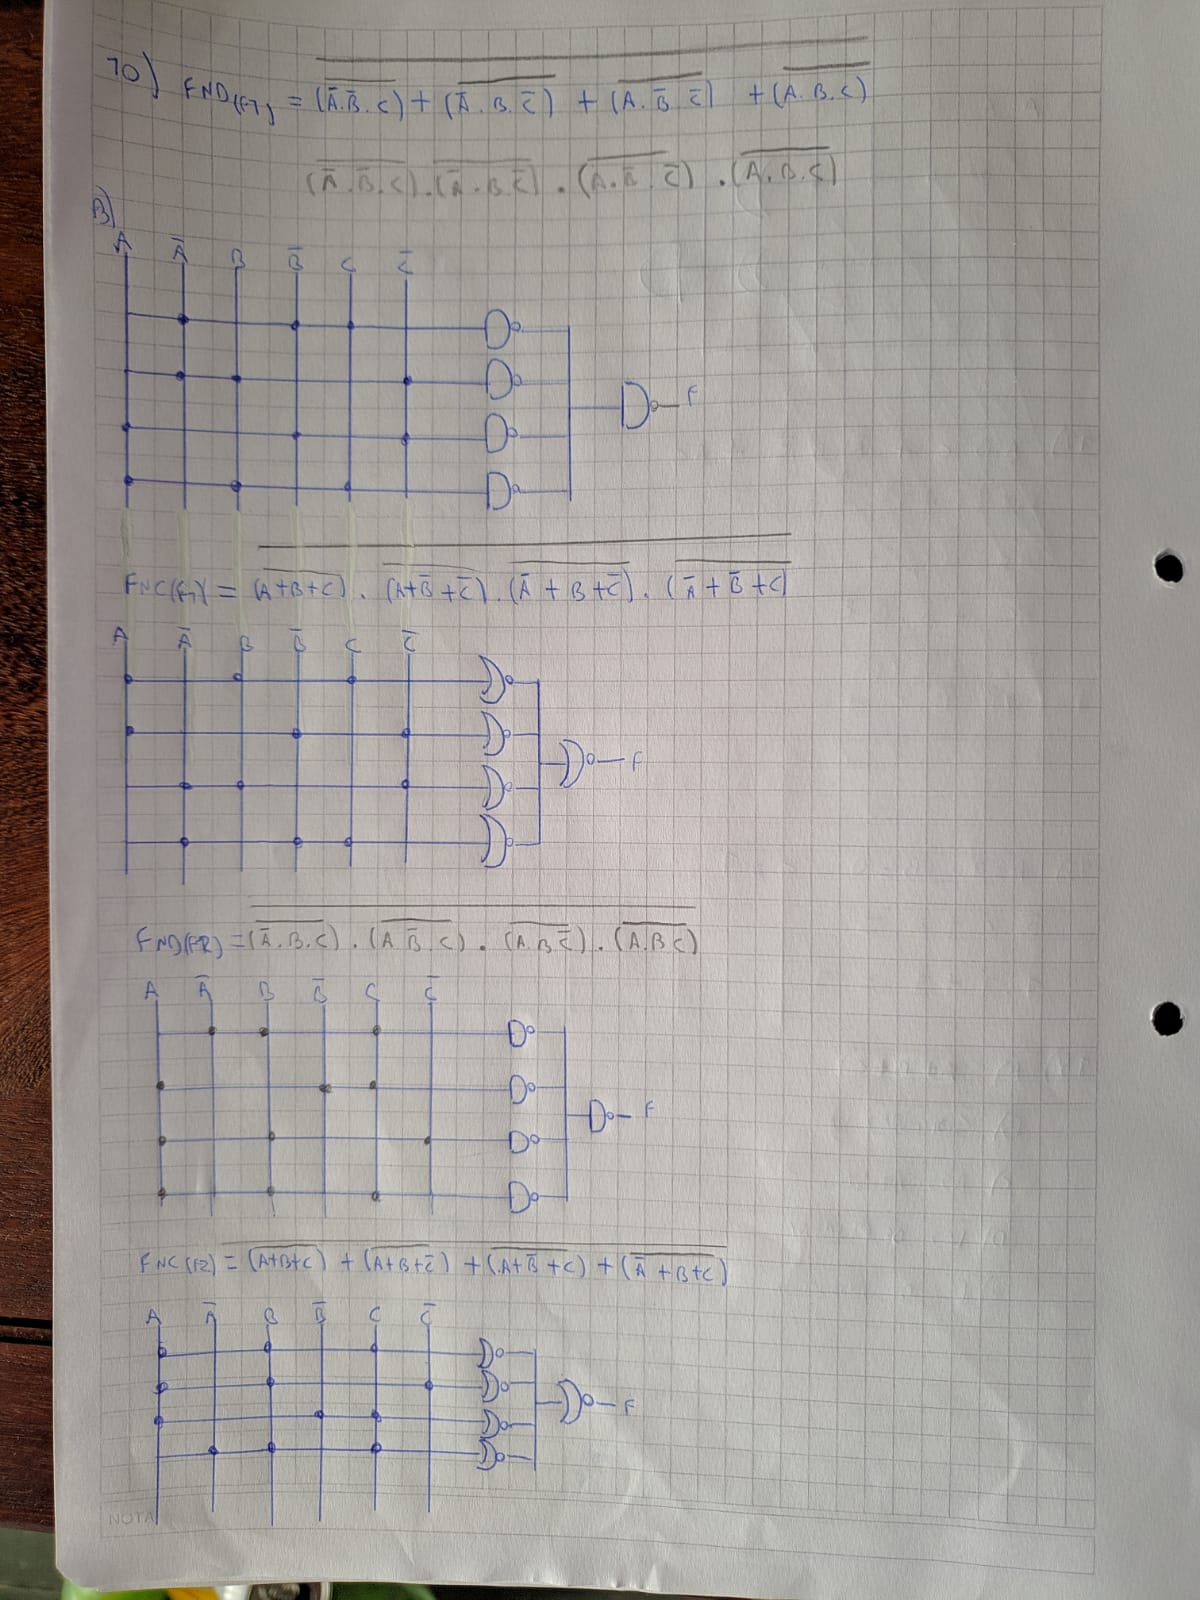 10) FND(F1) = (A̅.B̅.C) + (A̅.B.C̅) + (A.B̅.C̅) + (A.B.C)
(A̅.B̅.C).(A̅.B.C̅).(A.B̅.C̅).(A.B.C)
B)
A A̅ B B̅ C C̅
F
FNC(F1) = (A+B+C).(A+B̅+C̅).(A̅+B+C̅).(A̅+B̅+C)
A A̅ B B̅ C C̅
F
FND(F2) = (A̅.B.C).(A.B̅.C).(A.B.C̅).(A.B.C)
A A̅ B B̅ C C̅
F
FNC(F2) = (A+B+C) + (A+B+C̅) + (A+B̅+C) + (A̅+B+C)
A A̅ B B̅ C C̅
F
NOTA